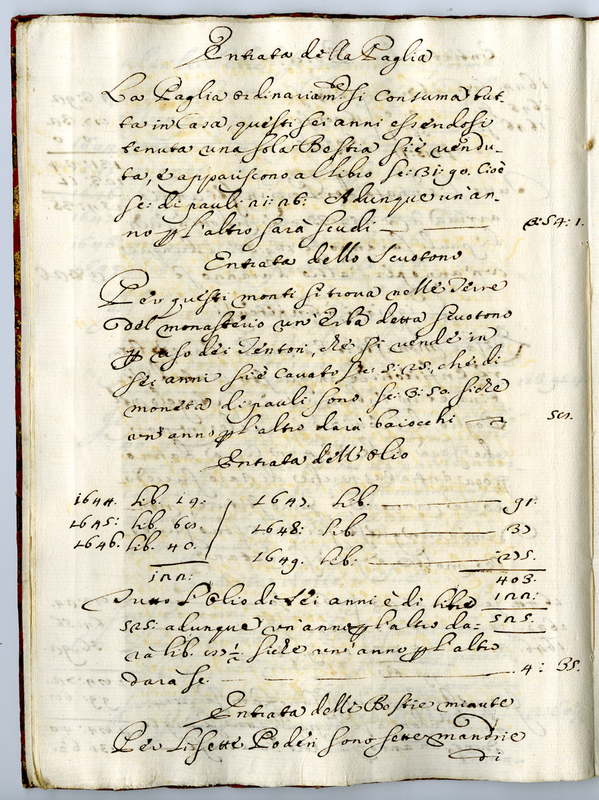 Entrata della Paglia
La Paglia ordinariam.te si consuma tut-
ta in Casa, questi sei anni essendosi
tenuta una sola Bestia si è vendu-
ta, e appariscono al libro sc: 31: 90. Cioè
sc: di pauli 21: 26: Adunque un'an-
no p l'altro sarà scudi — 3: 54: 1.
Entrata dello Scuotono
Per questi monti si trova nelle Terre
del monasterio un'Erba detta scuotono
p uso dei Tentori, che si vende in
sei anni si è cavato sc: 5: 25. che di
moneta di pauli sono sc: 3: 50. siche
un'anno p l'altro darà baiocchi —
Entrata dell'Olio
1644. lib. 19: 1647. lib. — 91:
1645: lib. 63. 1648: lib — 37
1646. lib. 40. 1649. lib: — 275.
122: 403.
Tutto l'Olio di sei anni è di libre 122:
525: adunque un'anno p l'altro da- 525.
rà lib. 87 ½ siche un'anno p l'altro
darà sc. — 4: 35.
Entrata delle Bestie minute
Per li sette Poderi sono sette mandrie
di